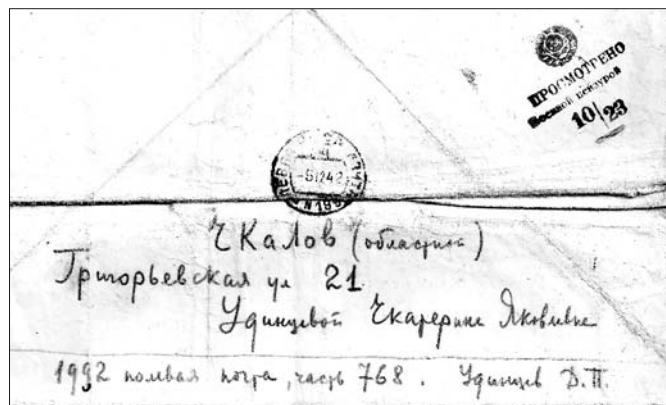 ПРОСМОТРЕНО
Военной цензурой
10/23
Чкалов (областной)
Григорьевская ул 21
Удинцевой Екатерине Яковлевне
1992 полевая почта, часть 768. Удинцев Д.П.